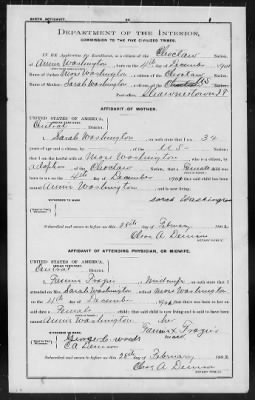 BIRTH AFFIDAVIT.
DEPARTMENT OF THE INTERIOR,
COMMISSION TO THE FIVE CIVILIZED TRIBES.
IN RE Application for Enrollment, as a citizen of the Choctaw Nation,
of Annie Washington, born on the 4th day of December, 190
Name of Father: Mose Washington, a citizen of the Choctaw Nation.
Name of Mother: Sarah Washington, a citizen of the U S Nation.
Post-office,
AFFIDAVIT OF MOTHER.
Central District.
I, Sarah Washington, on oath state that I am 34
years of age and a citizen, by of the U S
that I am the lawful wife of Mose Washington, who is a citizen, by
adoption of the Choctaw Nation; that a Female child was
born to me on the 4th day of December, 190 ; that said child has been named
Annie Washington, and is now living.
WITNESSES TO MARK:
Sarah Washington
Subscribed and sworn to before me this 28th day of February, 190
NOTARY PUBLIC.
AFFIDAVIT OF ATTENDING PHYSICIAN, OR MIDWIFE.
Central District.
I, Fannie Frazier, a midwife, on oath state that I
attended on Mrs. Sarah Washington, wife of Mose Washington
on the 4th day of December, 190 ; that there was born to her on said
date a Female child; that said child is now living and is said to have been
named Annie Washington
her
Fannie x Frazier
mark
WITNESSES TO MARK:
George C. Woods
Subscribed and sworn to before me this 28th day of February, 190
NOTARY PUBLIC.